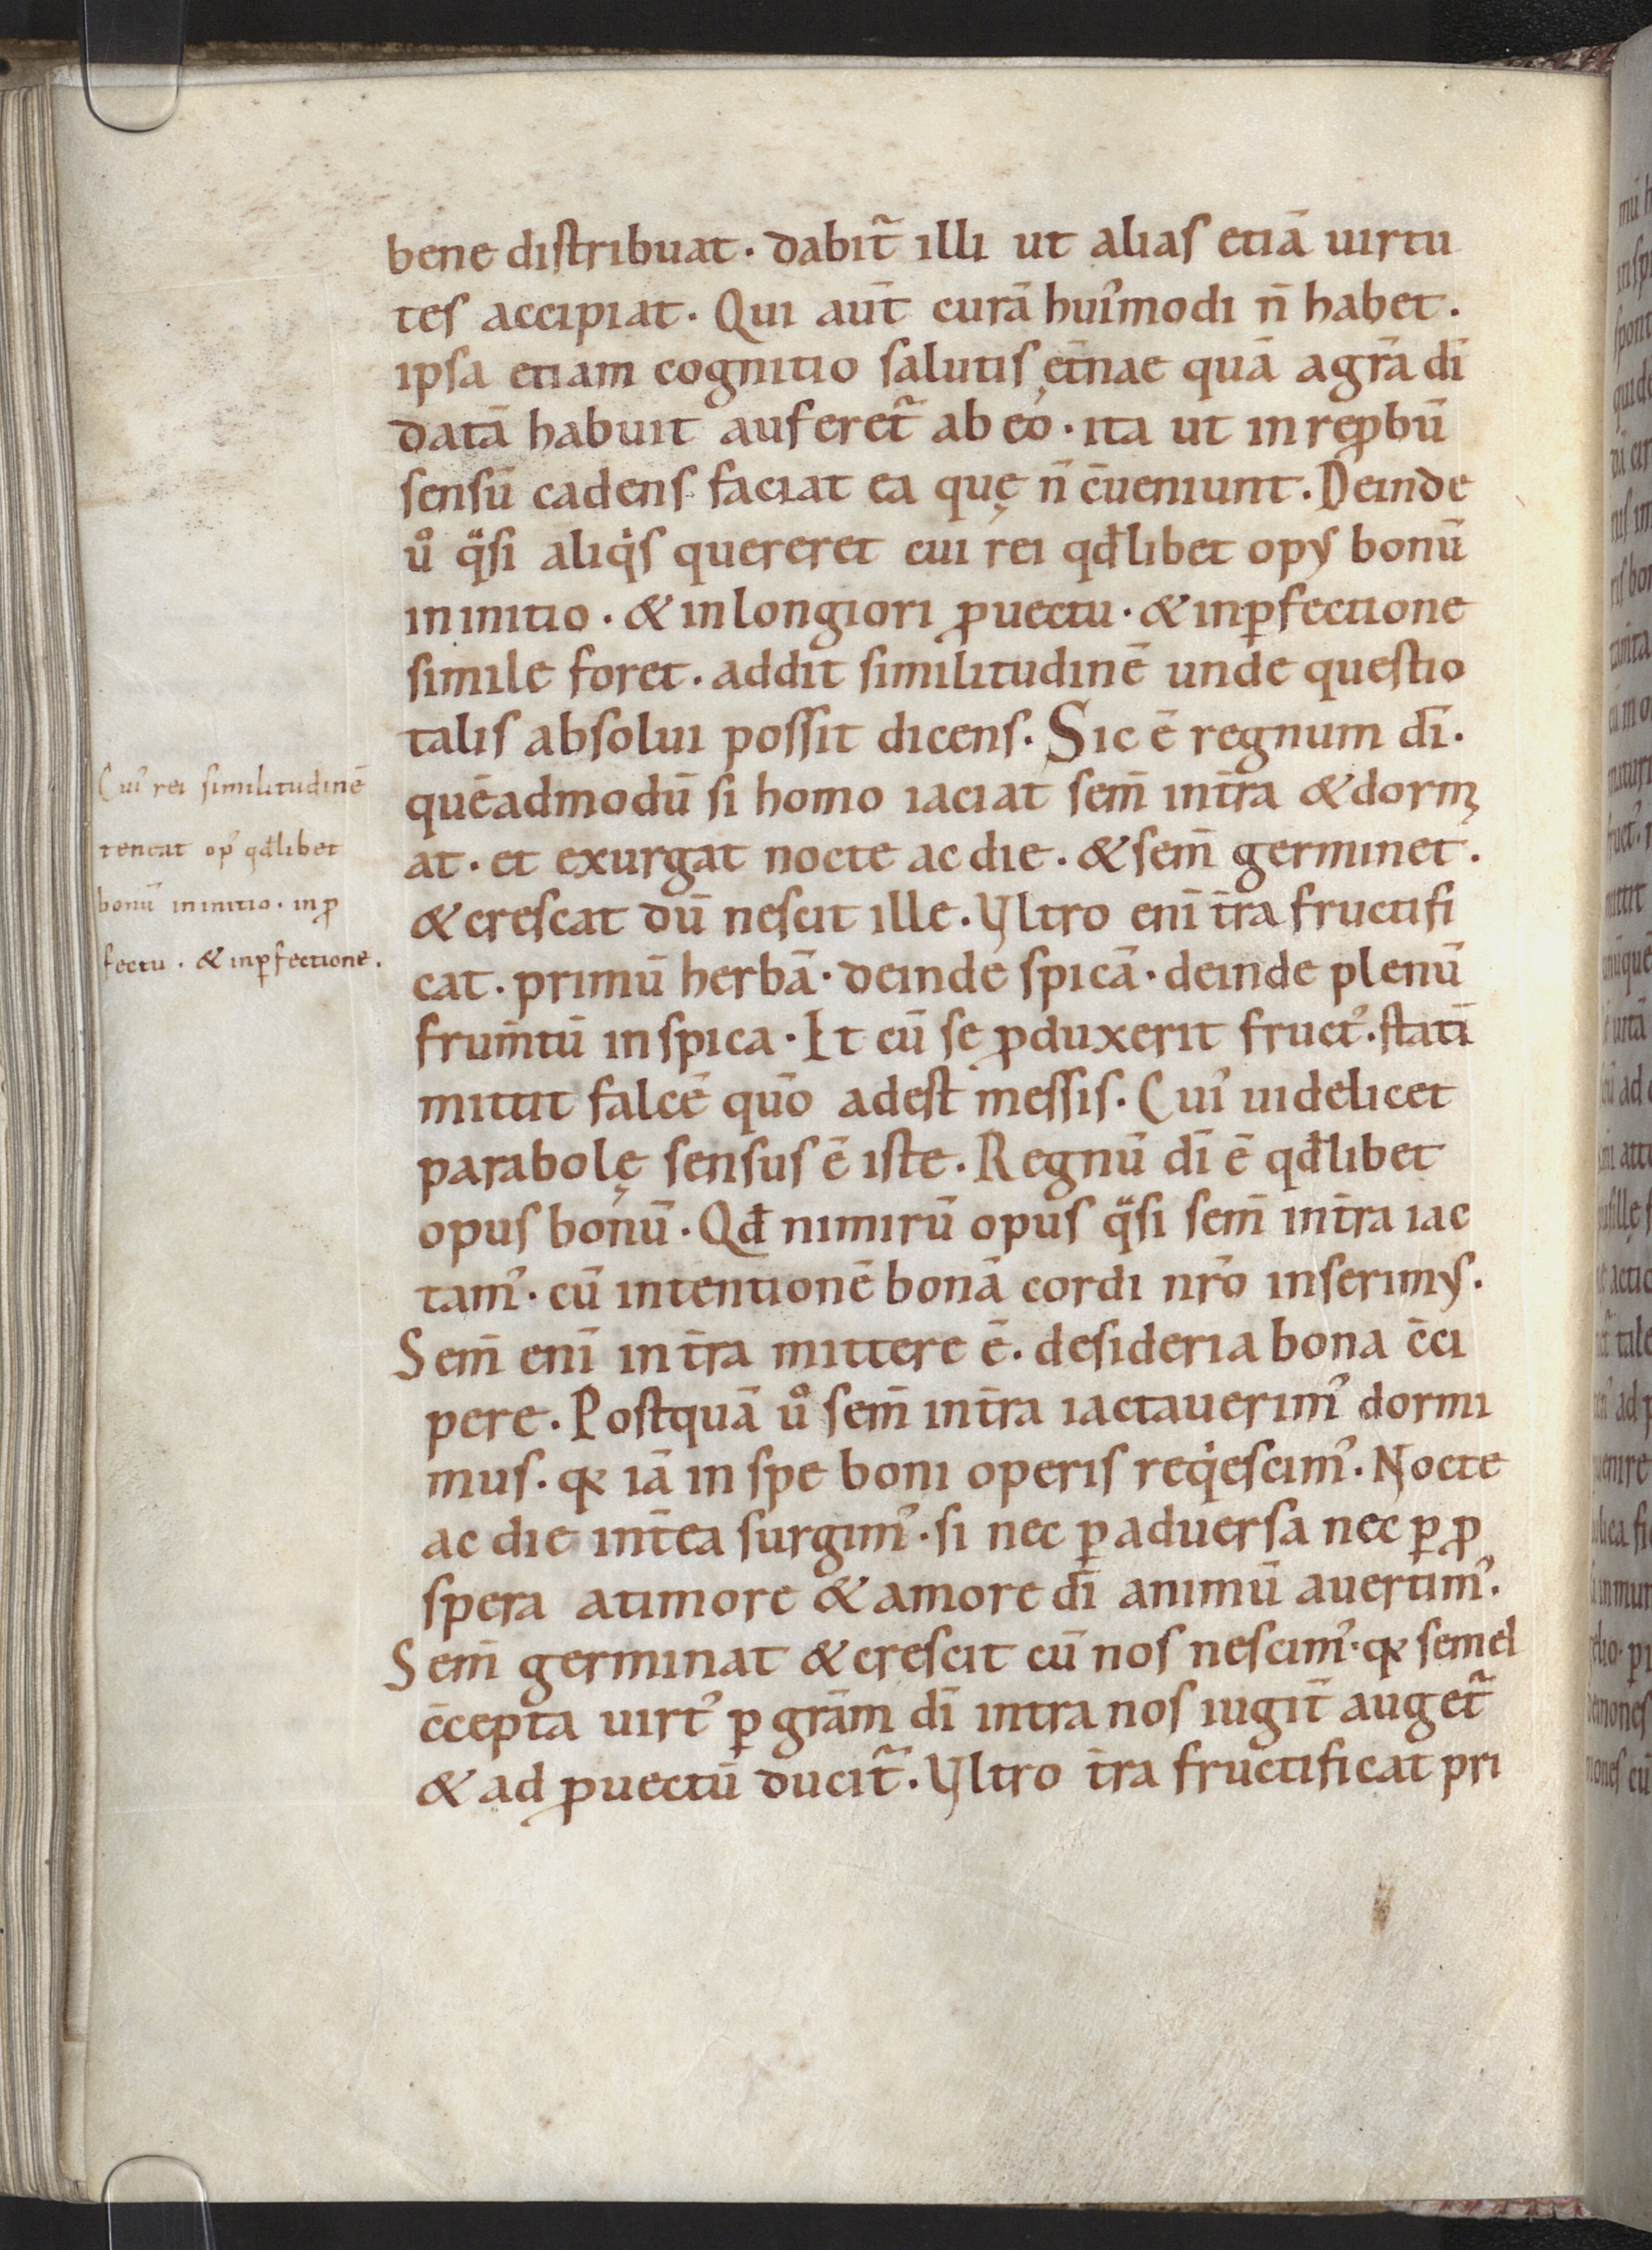 bene distribuat. dabit̃ illi ut alias etiā uirtu
tes accipiat. Qui aut̄ curā hui᾿modi n̄ habet.
ipsa etiam cognitio salutis et̄nae quā agrā dī
datā habuit auferet̃ ab eo. ita ut in reꝓbū
sensū cadens faciat ea quę n̄ c̄ueniunt. Deinde
uͦ qͣsi aliqͥs quereret cui rei qđlibet opꝰ bonū
in initio. & in longiori ꝓuectu. & in ꝑfectione
simile foret. addit similitudinē unde questio
talis absolui possit dicens. Sic ē regnum dī.
quēadmodū si homo iaciat sem̄ in t̄ra & dormi
at. et exurgat nocte ac die. & sem̄ germinet.
& crescat dū nescit ille. Vltro enī t̄ra fructifi
cat. primū herbā. deinde spicā. deinde plenū
frum̄tū in spica. Et cū se ꝓduxerit fruct᾿. statī
mittit falcē quō adest messis. Cui᾿ uidelicet
parabolę sensus ē iste. Regnū dī ē qđlibet
opus bonū. Qđ nimirū opus qͣsi sem̄ in t̄ra iac
tam᾿. cū intentionē bonā cordi nr̄o inserimꝰ.
Sem̄ enī in t̄ra mittere ē. desideria bona c̄ci
pere. Postquā uͦ sem̄ in t̄ra iactauerim᾿ dormi
mus. qꝛ iā in spe boni operis reqͥescim᾿. Nocte
ac die int̄ea surgim᾿. si nec ꝑ aduersa nec ꝑ ꝓ
spera a timore & amore dī animū auertim᾿.
Sem̄ germinat & crescit cū nos nescim᾿. qꝛ semel
c̄cepta uirt᾿ ꝑ grām dī intra nos iugit̄ auget̃
& ad ꝓuectū ducit̃. Vltro t̄ra fructificat pri
Cui᾿ rei similitudinē
teneat op᾿ qđlibet
bonū in initio. in ꝓ
fectu. & in ꝑfectione.